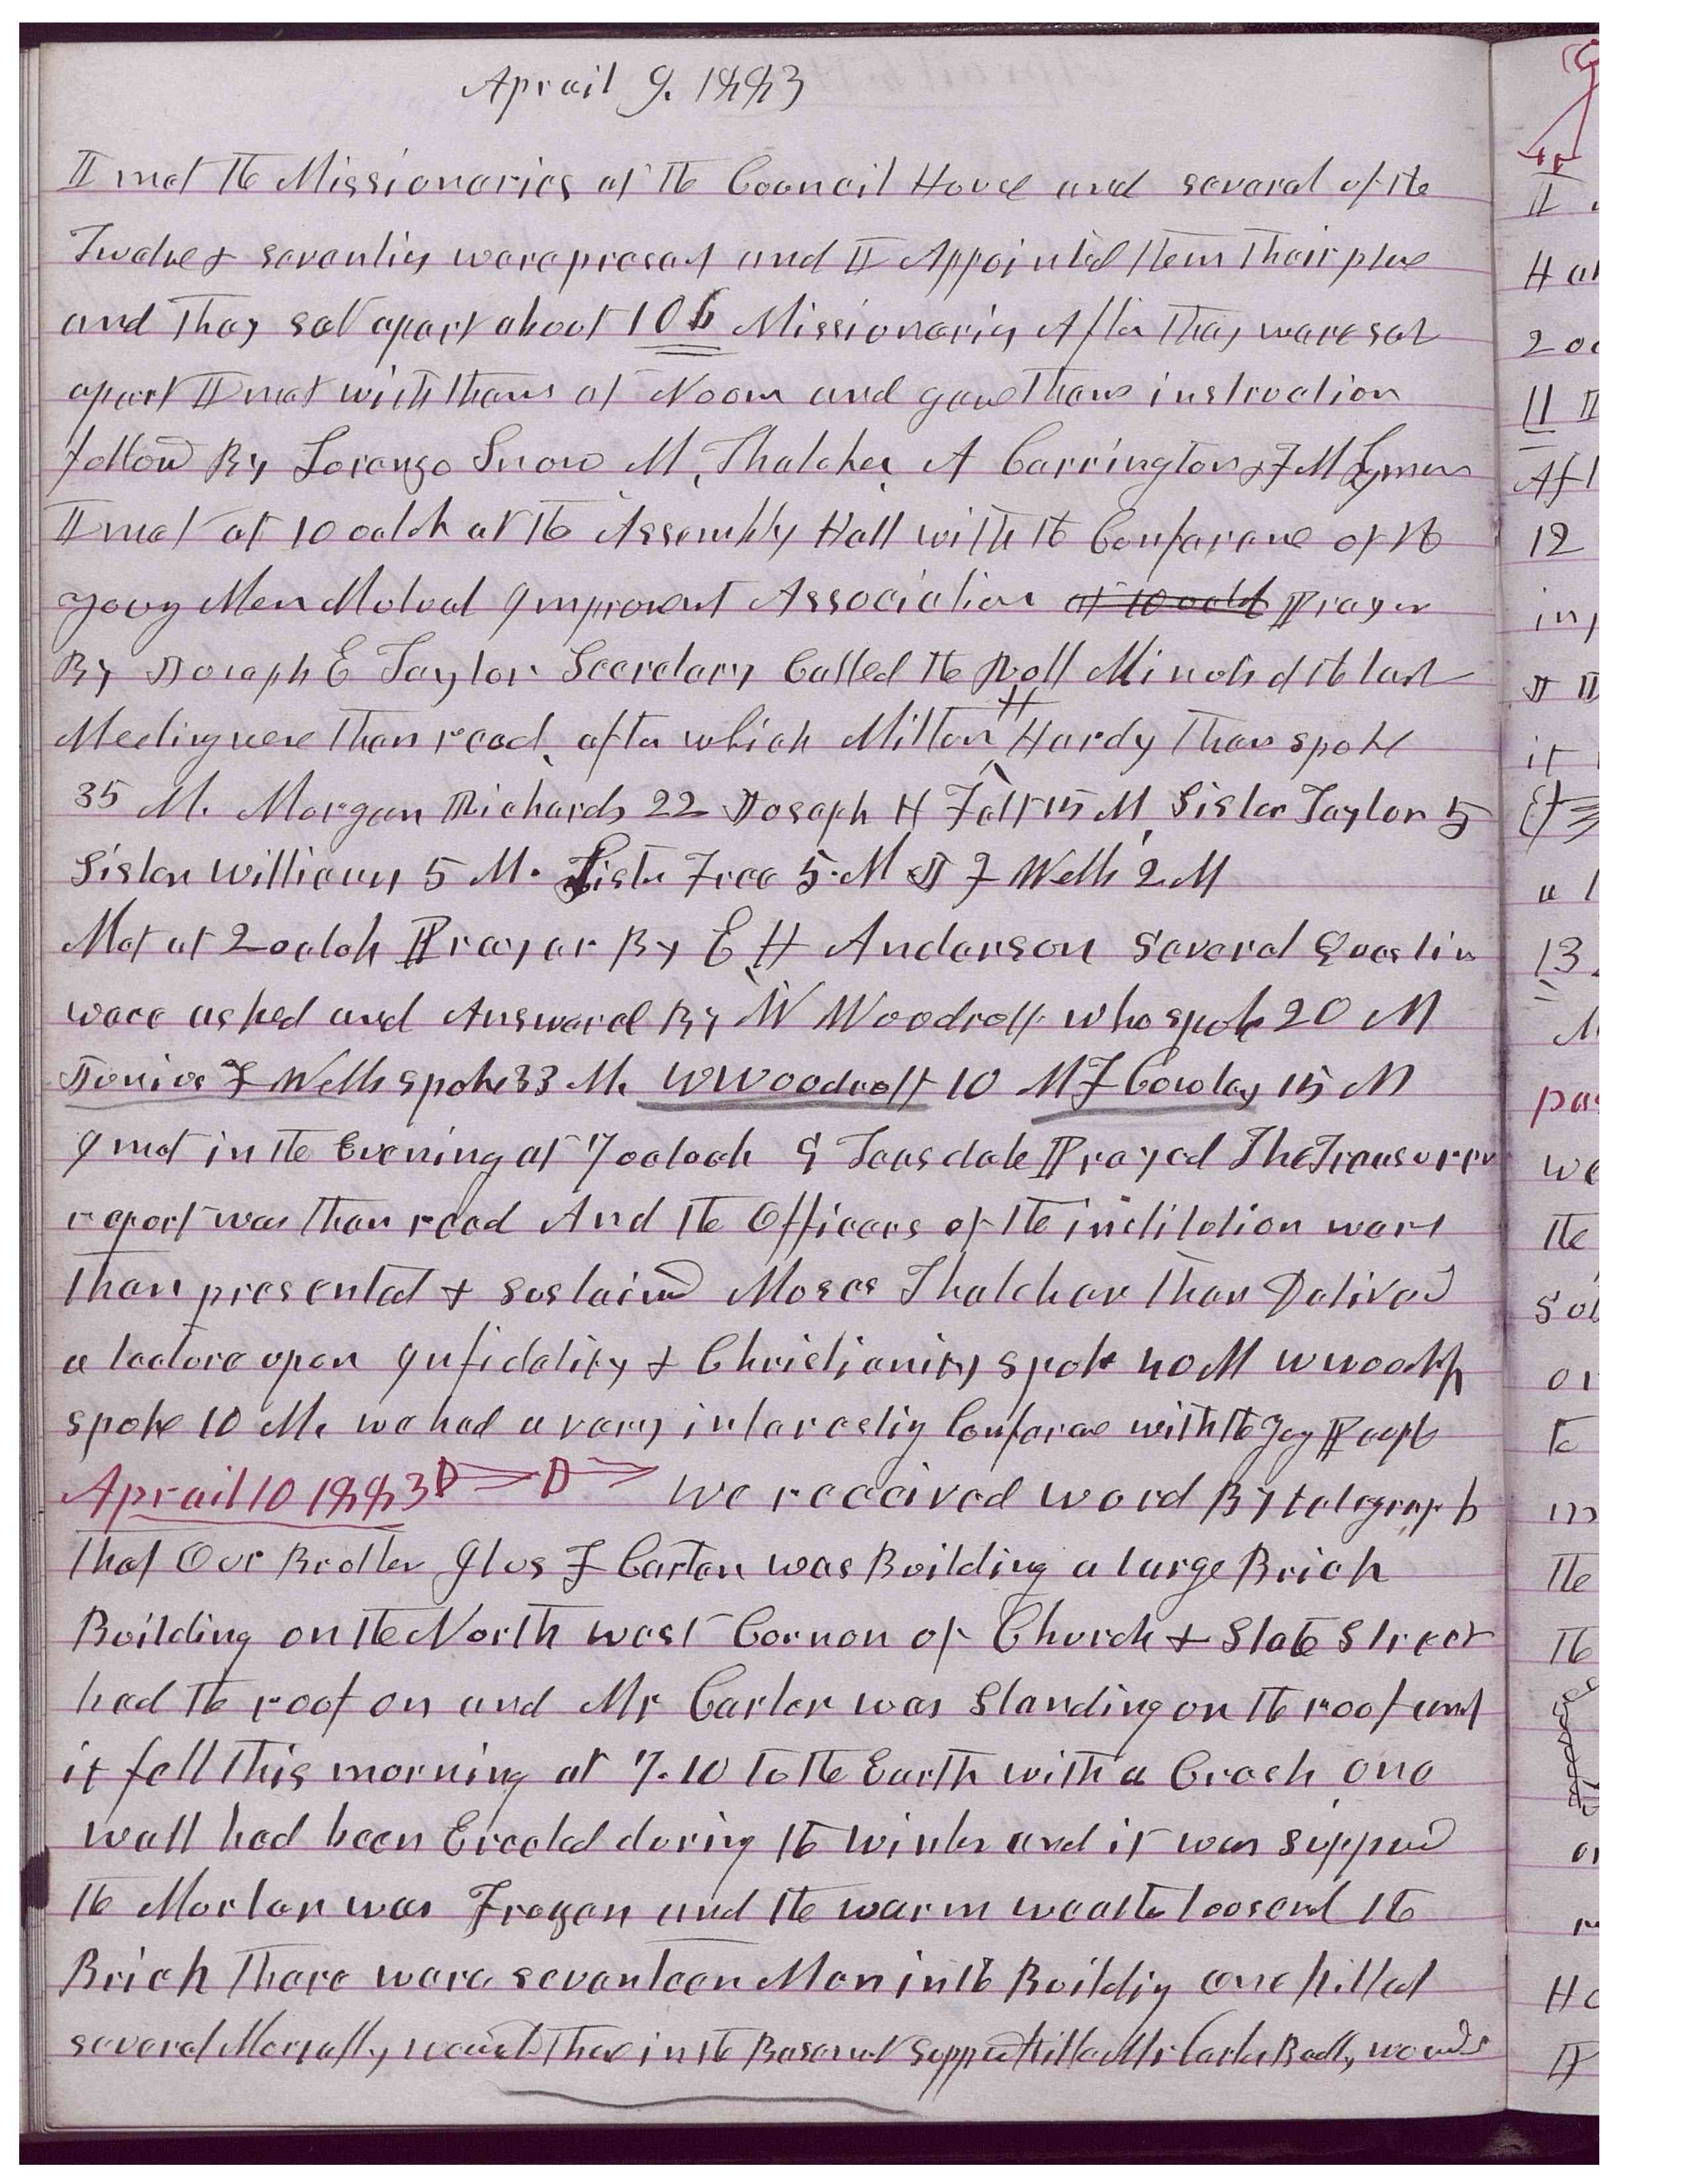 Aprail 9. 1883
I met the Missionaries at the Council House and several of the
Twelve & seventies ware present and I Appointed them thair place
and they set apart about 106 Missionaries After they ware set
apart I met with them at Noon and gave them instruction
follow By Lorenzo Snow M, Thatcher A Carrington & F M Lyman
I met at 10 oclok at the Assembly Hall with the Confarance of the
Young Men Mutual Improvemt Association at 10 oclok Prayer
By Joseph E Taylor Secretary Called the Roll Minutes of the last
Meeting were then read, after which Milton H Hardy then spoke
35 M. Morgan Richards 22 Joseph H Felt 15 M, Sister Taylor 5
Sister Williams 5 M. Sister Free 5. M J F Wells 2 M
Met at 2 oclok Prayer By E H Anderson Several Questions
ware asked and Answered By W Woodruff who spoke 20 M
Junius F Wells spoke 33 M. W Woodruff 10 M F Cowley 15 M
I met in the Evening at 7 oclock G Teasdale Prayed The Treasurer
report was then read And the Officers of the institution ware
then presented & sustained Moses Thatcher then Delivered
a lecture upon Infidelity & Christianity spoke 40 M W Woodruff
spoke 10 M. we had a very interesting Confarance with the Yog People
Aprail 10 1883 we received word By telegraph
that Our Brother Ilus F Carter was Building a large Brick
Building on the North west Corner of Church & State Street
had the roof on and Mr Carter was standing on the roof and
it fell this morning at 7.10 to the Earth with a Crash one
wall had been Erected during the winter and it was supposed
the Mortar was Frozen and the warm weather loosend the
Brick there ware seventeen Men in the Building one killed
several Mortally wound Three in the Basemet Supposed killed Mr Carter Badly wounded